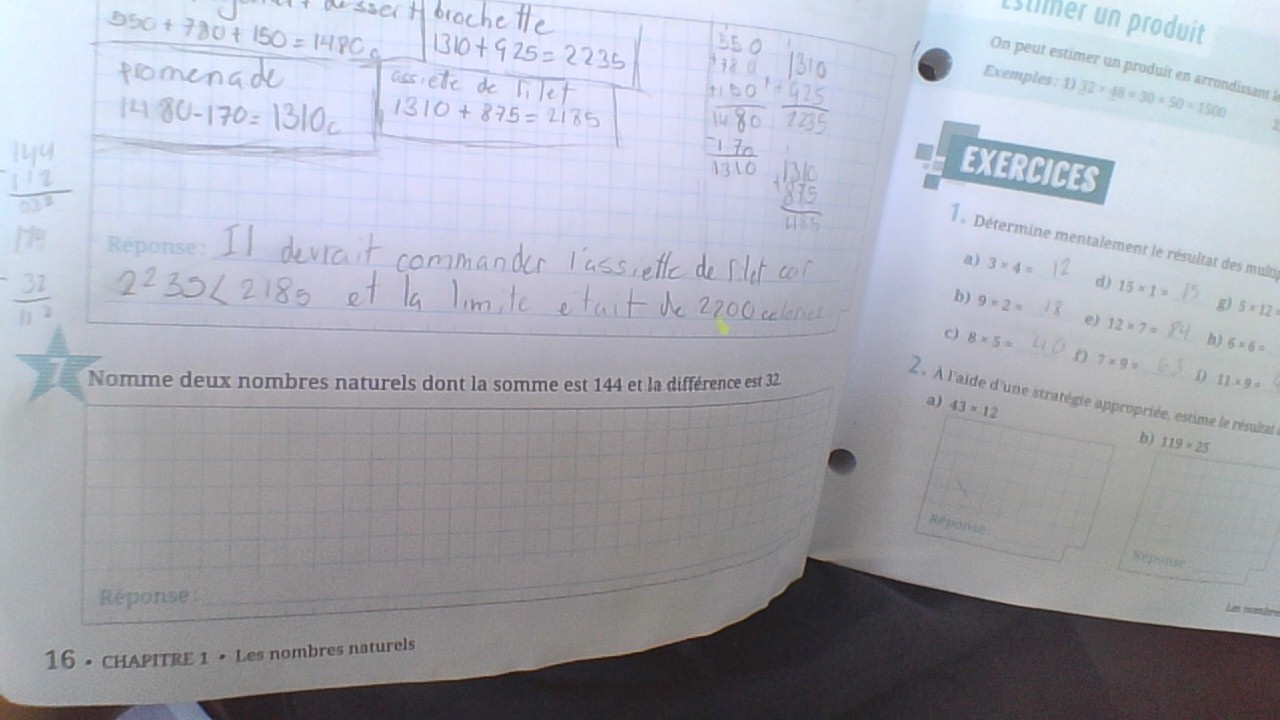 dessert
brochette
550 + 780 + 150 = 1480
1310 + 925 = 2235
promenade
1480-170= 1310c
assiette de filet
1310 + 875 = 2185
550
+780
+150
1480
-170
1310
1310
+925
2235
1310
+875
2185
144
-112
032
144
- 32
112
Réponse: Il devrait commander l'assiette de filet car
2235< 2185 et la limite était de 2200
7
Nomme deux nombres naturels dont la somme est 144 et la différence est 32.
Réponse:
16 • CHAPITRE 1 • Les nombres naturels
Estimer un produit
On peut estimer un produit en arrondissant
Exemples : 1) 32 × 48 ≈ 30 × 50 = 1500
EXERCICES
1. Détermine mentalement le résultat des
a) 3 × 4 = 12
d) 15 × 1 = 15
g) 5 × 12
b) 9 × 2 = 18
e) 12 × 7 = 84
h) 6 × 6 =
c) 8 × 5 = 40
f) 7 × 9 = 63
i) 11 × 9 =
2. À l'aide d'une stratégie appropriée, estime le résultat
a) 43 × 12
b) 119 × 25
Réponse:
Réponse
Les